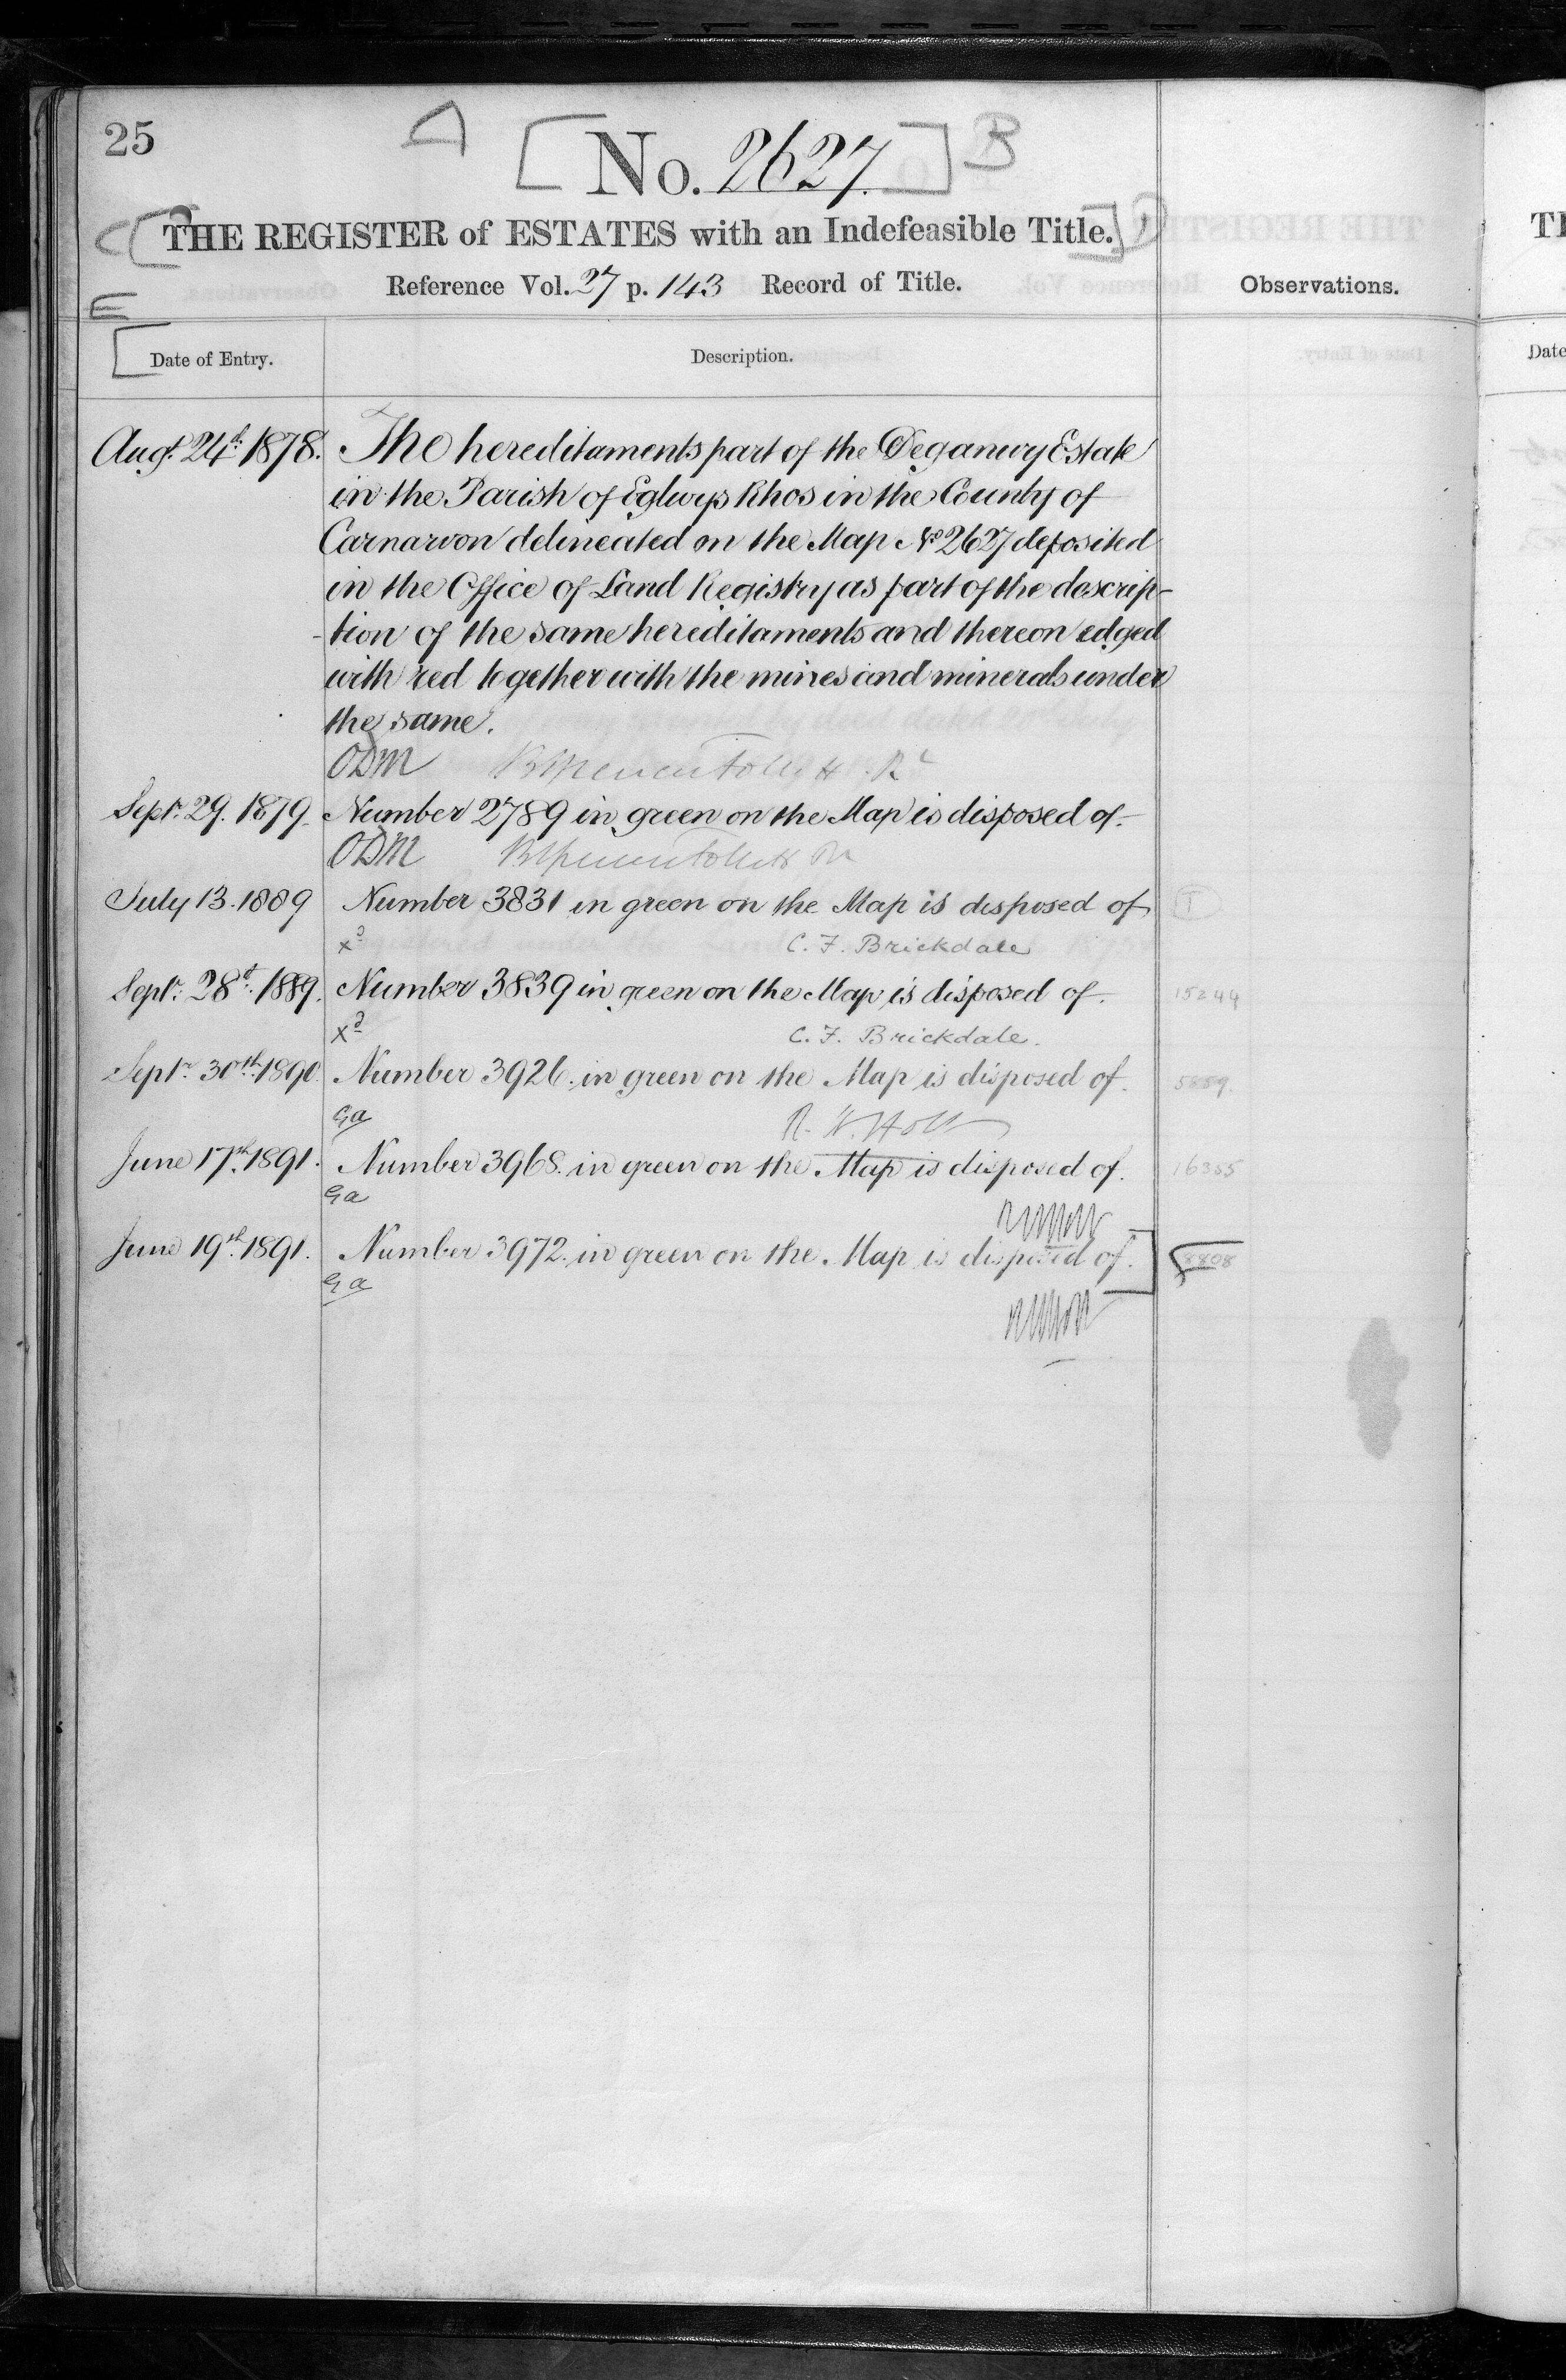 25
A
No. 2627.
B
C
THE REGISTER of ESTATES with an Indefeasible Title.
Reference Vol. 27 p. 143 Record of Title.
Observations.
E
Date of Entry.
Description.
Augt. 24th. 1878. The hereditaments part of the Deganwy Estate
in the Parish of Eglwys Rhos in the County of
Carnarvon delineated on the Map No 2627 deposited
in the Office of Land Registry as part of the descrip-
-tion of the same hereditaments and thereon edged
with red together with the mines and minerals under
the same.
ODM
Septr. 29. 1879. Number 2789 in green on the Map is disposed of.
ODM
July 13. 1889 Number 3831 in green on the Map is disposed of
xd C. F. Brickdale
Septr. 28th. 1889. Number 3839 in green on the Map is disposed of. 15244
xd C. F. Brickdale.
Septr. 30th. 1890. Number 3926. in green on the Map is disposed of.
Ga R. W. Holt
June 17th. 1891. Number 3968. in green on the Map is disposed of.
Ga
June 19th. 1891. Number 3972. in green on the Map is disposed of. 8808
Ga
Date